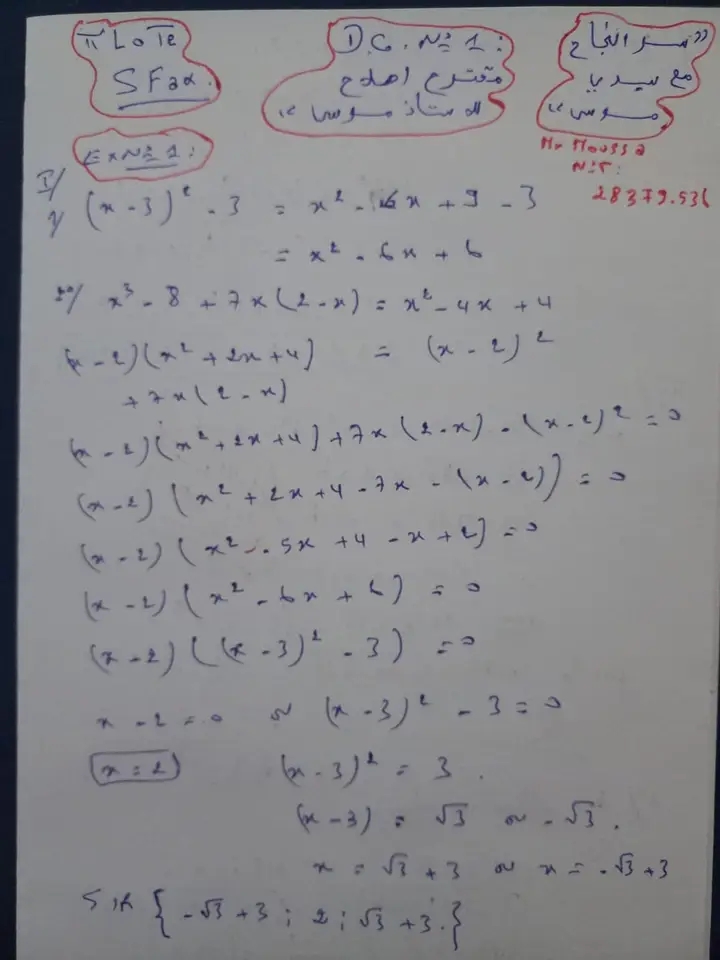 π Lote
SFax.
D.C. N° 1:
مقترح اصلاح
للأستاذ موسى "
"سر النجاح
مع سيدي
موسى "
Mr Moussa
N°T:
Ex N° 1:
I/
1/ (x - 3)² - 3 = x² - 6x + 9 - 3
= x² - 6x + 6
2°/ x³ - 8 + 7x(2 - x) = x² - 4x + 4
(x - 2)(x² + 2x + 4) = (x - 2)²
+ 7x(2 - x)
(x - 2)(x² + 2x + 4) + 7x(2 - x) - (x - 2)² = 0
(x - 2)(x² + 2x + 4 - 7x - (x - 2)) = 0
(x - 2)(x² - 5x + 4 - x + 2) = 0
(x - 2)(x² - 6x + 6) = 0
(x - 2)((x - 3)² - 3) = 0
x - 2 = 0 ou (x - 3)² - 3 = 0
x = 2 (x - 3)² = 3.
(x - 3) = √3 ou - √3.
x = √3 + 3 ou x = - √3 + 3
SIR { - √3 + 3 ; 2 ; √3 + 3. }